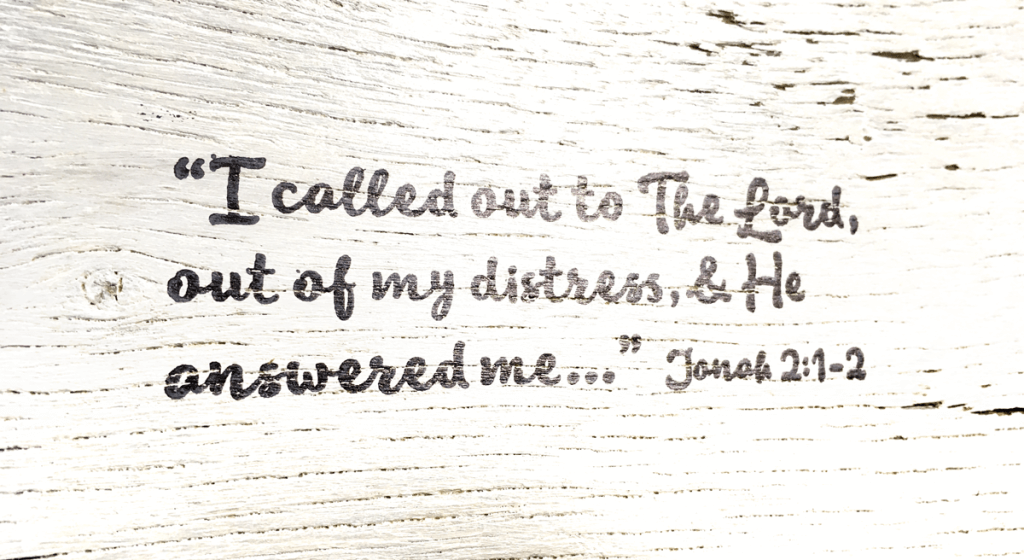 “I called out to The Lord,
out of my distress, & He
answered me...” Jonah 2:1-2